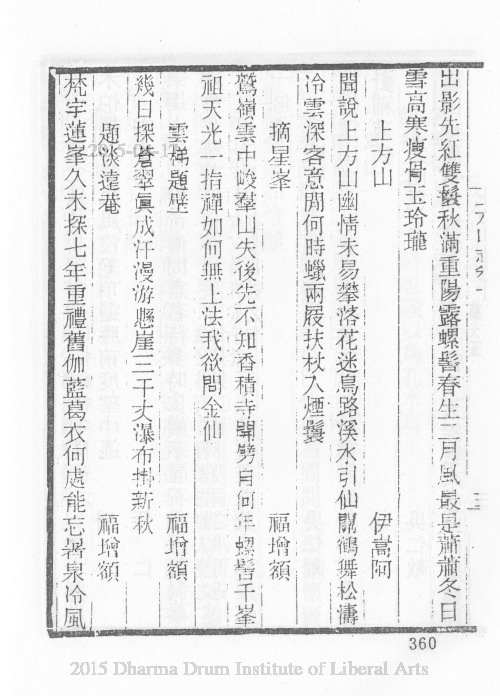 出影先紅雙鬢秋滿重陽露螺髻春生二月風最是蕭蕭冬日
雪高寒瘦骨玉玲瓏
上方山 伊嵩阿
聞說上方山幽情未易攀落花迷鳥路溪水引仙關鶴舞松濤
冷雲深客意閒何時蠟兩屐扶杖入煙鬟
摘星峯 福增額
鷲嶺雲中峻羣山失後先不知香積寺開劈自何年螺髻千峯
祖天光一指禪如何無上法我欲問金仙
雲梯題壁 福增額
幾日探蒼翠眞成汗漫游懸崖三千丈瀑布掛新秋
題淡遠菴 福增額
梵宇蓮峯久未探七年重禮舊伽藍葛衣何處能忘暑泉冷風
三
360
2015-04-17
2015 Dharma Drum Institute of Liberal Arts